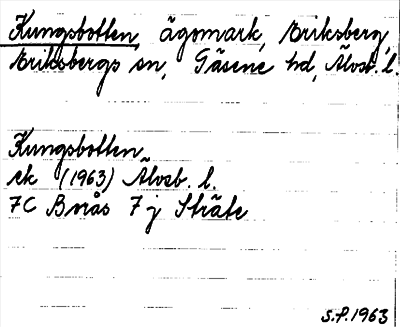 Kungsbotten, ägomark, Eriksberg,
Eriksbergs sn, Gäsene hd, Älvsb. l.
Kungsbotten
ek (1963) Älvsb. l.
7C Borås 7 j Sträte
S.P. 1963